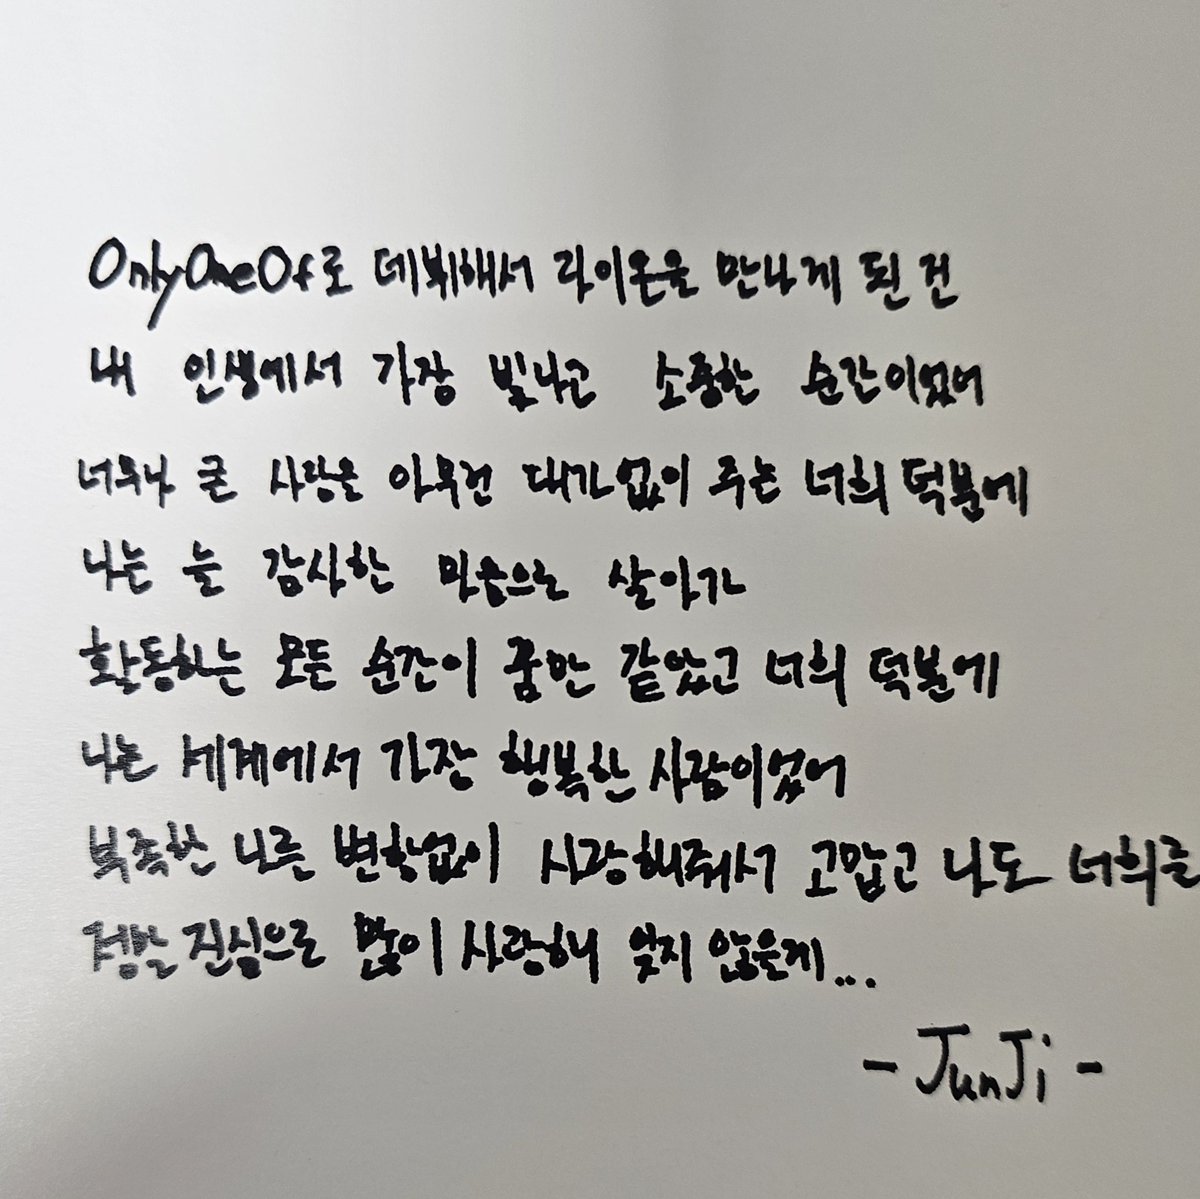 OnlyOneOf로 데뷔해서 라이온을 만나게 된 건
내 인생에서 가장 빛나고 소중한 순간이었어
너무나 큰 사랑을 아무런 대가없이 주는 너희 덕분에
나는 늘 감사한 마음으로 살아가
활동하는 모든 순간이 꿈만 같았고 너희 덕분에
나는 세계에서 가장 행복한 사람이었어
부족한 나를 변함없이 사랑해줘서 고맙고 나도 너희를
정말 진심으로 많이 사랑해 잊지 않을게...
- JunJi -